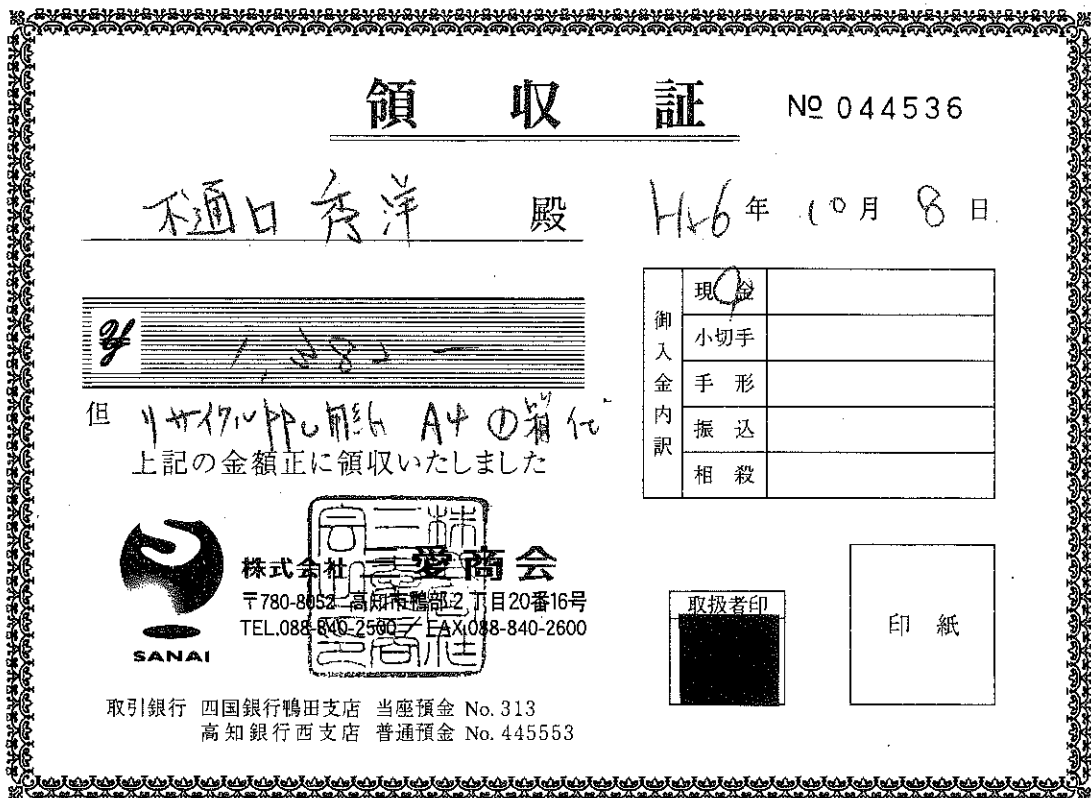 領収証
№ 044536
樋口 秀洋 殿
H26年 10月 8日
¥
御入金内訳
現金
小切手
手形
振込
相殺
但 リサイクルPPC用紙 A4 ①箱代
上記の金額正に領収いたしました
株式会社 三愛商会
〒780-8052 高知市鴨部2丁目20番16号
TEL.088-840-2500 / FAX.088-840-2600
SANAI
取扱者印
印紙
取引銀行 四国銀行鴨田支店 当座預金 No.313
高知銀行西支店 普通預金 No.445553